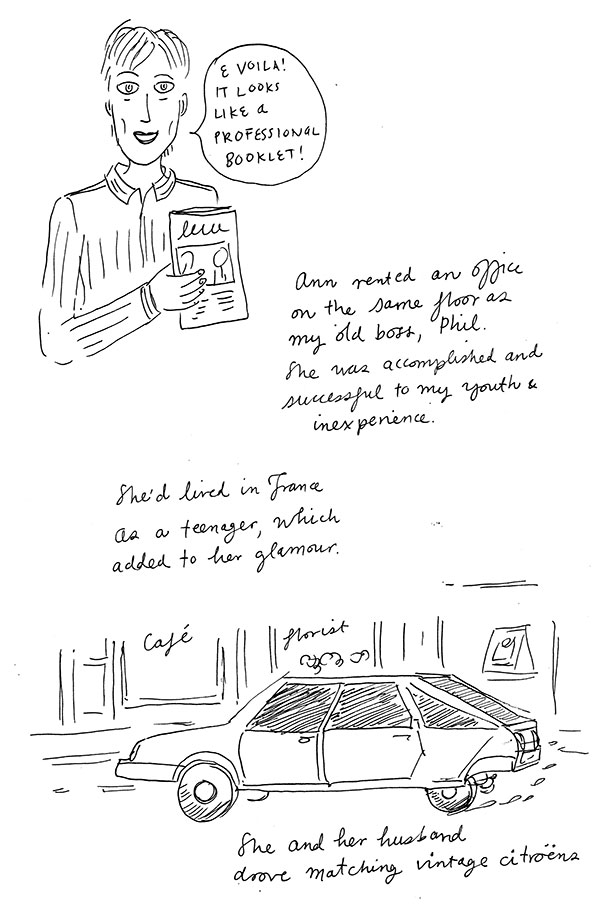 & VOILA!
IT LOOKS
LIKE a
PROFESSIONAL
BOOKLET!
Ann rented an office
on the same floor as
my old boss, Phil.
She was accomplished and
successful to my youth &
inexperience.
She'd lived in France
as a teenager, which
added to her glamour.
Café
florist
She and her husband
drove matching vintage citroëns